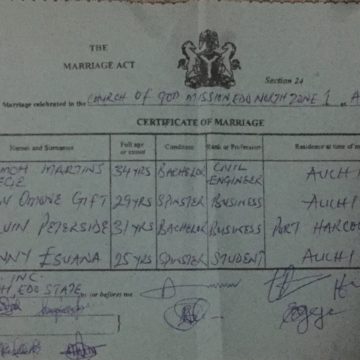 THE
MARRIAGE ACT
Section 24
Marriage celebrated in the CHURCH OF GOD MISSION, EDO NORTH ZONE 1 at A
CERTIFICATE OF MARRIAGE
Names and Surnames Full age or minor Condition Rank or Profession Residence at time of m
MARTINS 34YRS BACHELOR CIVIL ENGINEER AUCHI
OMONE GIFT 29YRS SPINSTER BUSINESS AUCHI
PETERSIDE 31YRS BACHELOR BUSINESS PORT HARCOU
NNY ESUANA 25YRS SPINSTER STUDENT AUCHI
INC.
EDO STATE or before me